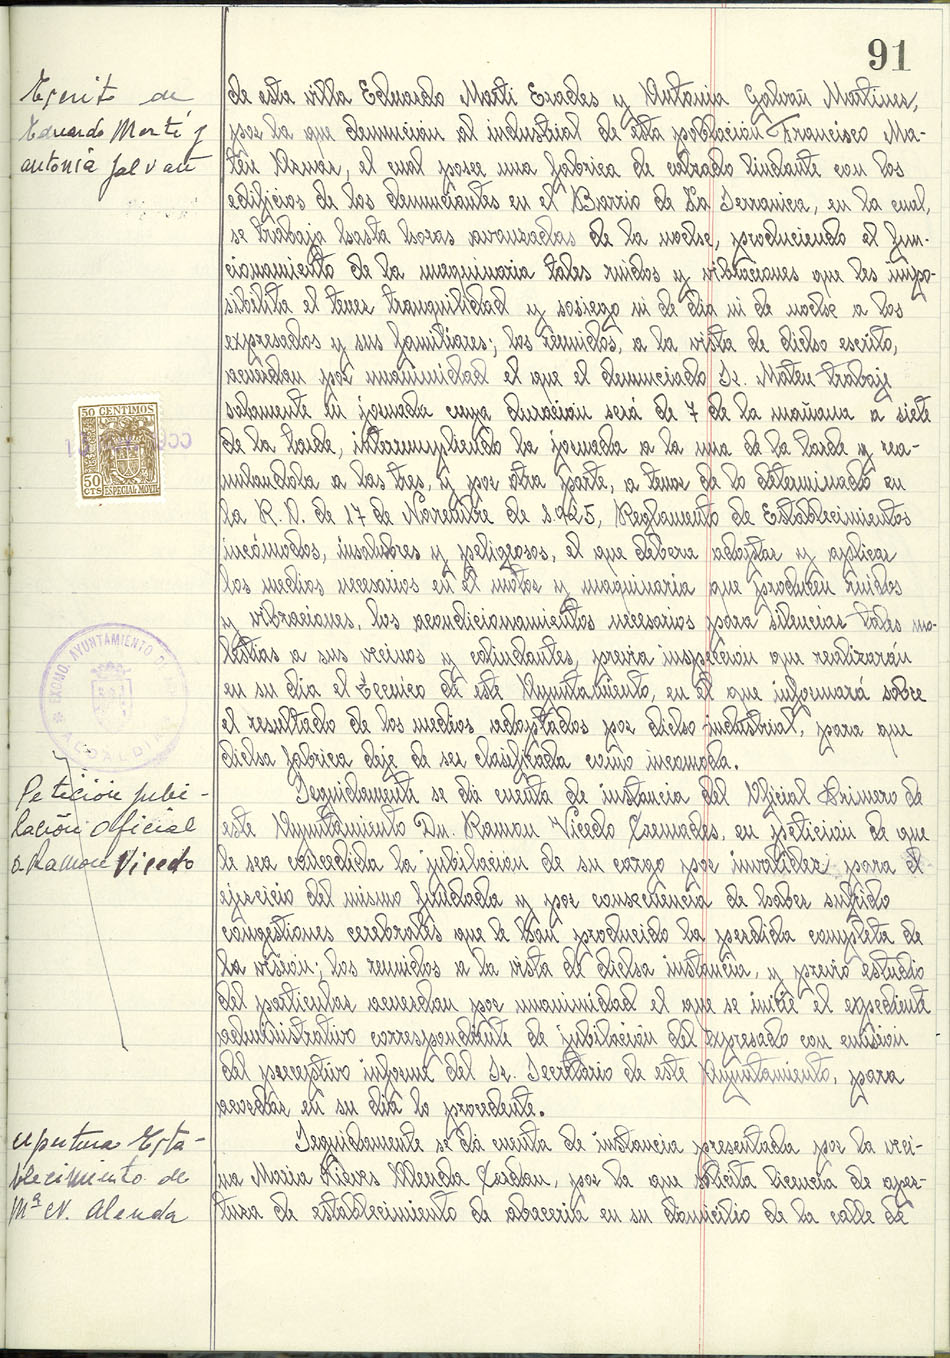 91
Escrito de
Eduardo Martí y
antonia Galvañ
de esta villa Eduardo Marti Erades y Antonia Galvañ Martines,
por la que denuncian al industrial de esta población Francisco Ma-
teu Román, el cual posee una fabrica de calzado lindante con los
edificios de los denunciantes en el Barrio de La Serranica, en la cual,
se trabaja hasta horas avanzadas de la noche, produciendo el fun-
cionamiento de la maquinaria tales ruidos y vibraciones que les impo-
sibilita el tener tranquilidad y sosiego ni de dia ni de noche a los
expresados y sus familiares; los reunidos, a la vista de dicho escrito,
acuerdan por unanimidad el que el denunciado Sr. Mateu trabaje
solamente en jornada cuya duración será de 7 de la mañana a siete
de la tarde, interrumpiendo la jornada a la una de la tarde y rea-
nudandola a las tres, y por otra parte, a tenor de lo determinado en
la R. O. de 17 de Noviembre de 1.925, Reglamento de Establecimientos
incómodos, insalubres y peligrosos, el que debera adoptar y aplicar
los medios necesarios en el motor y maquinaria que producen ruidos
y vibraciones, los acondicionamientos necesarios para silenciar tales mo-
lestias a sus vecinos y colindantes, previa inspección que realizarán
en su dia el Tecnico de este Ayuntamiento, en el que informará sobre
el resultado de los medios adoptados por dicho industrial, para que
dicha fabrica deje de ser clasificada como incomoda.
50 CENTIMOS
50
CTS ESPECIAL MOVIL
EXCMO. AYUNTAMIENTO DE
ALCALDIA
Petición jubi-
lación Oficial
D. Ramon Vicedo
Seguidamente se dá cuenta de instancia del Oficial Primero de
este Ayuntamiento Dn. Ramon Vicedo, en peticion de que
le sea concedida la jubilacion de su cargo por invalidez para el
ejercicio del mismo fundada y por consecuencia de haber sufrido
congestiones cerebrales que le han producido la perdida completa de
la visión; los reunidos a la vista de dicha instancia, y previo estudio
del particular acuerdan por unanimidad el que se inicie el expediente
administrativo correspondiente de jubilacion del expresado con emision
del preceptivo informe del Sr. Secretario de este Ayuntamiento, para
acordar en su dia lo procedente.
apertura Esta-
blecimiento de
Mª N. Alenda
Seguidamente se dá cuenta de instancia presentada por la veci-
na Maria Nieves Alenda, por la que solicita licencia de aper-
tura de establecimiento de abaceria en su domicilio de la calle de